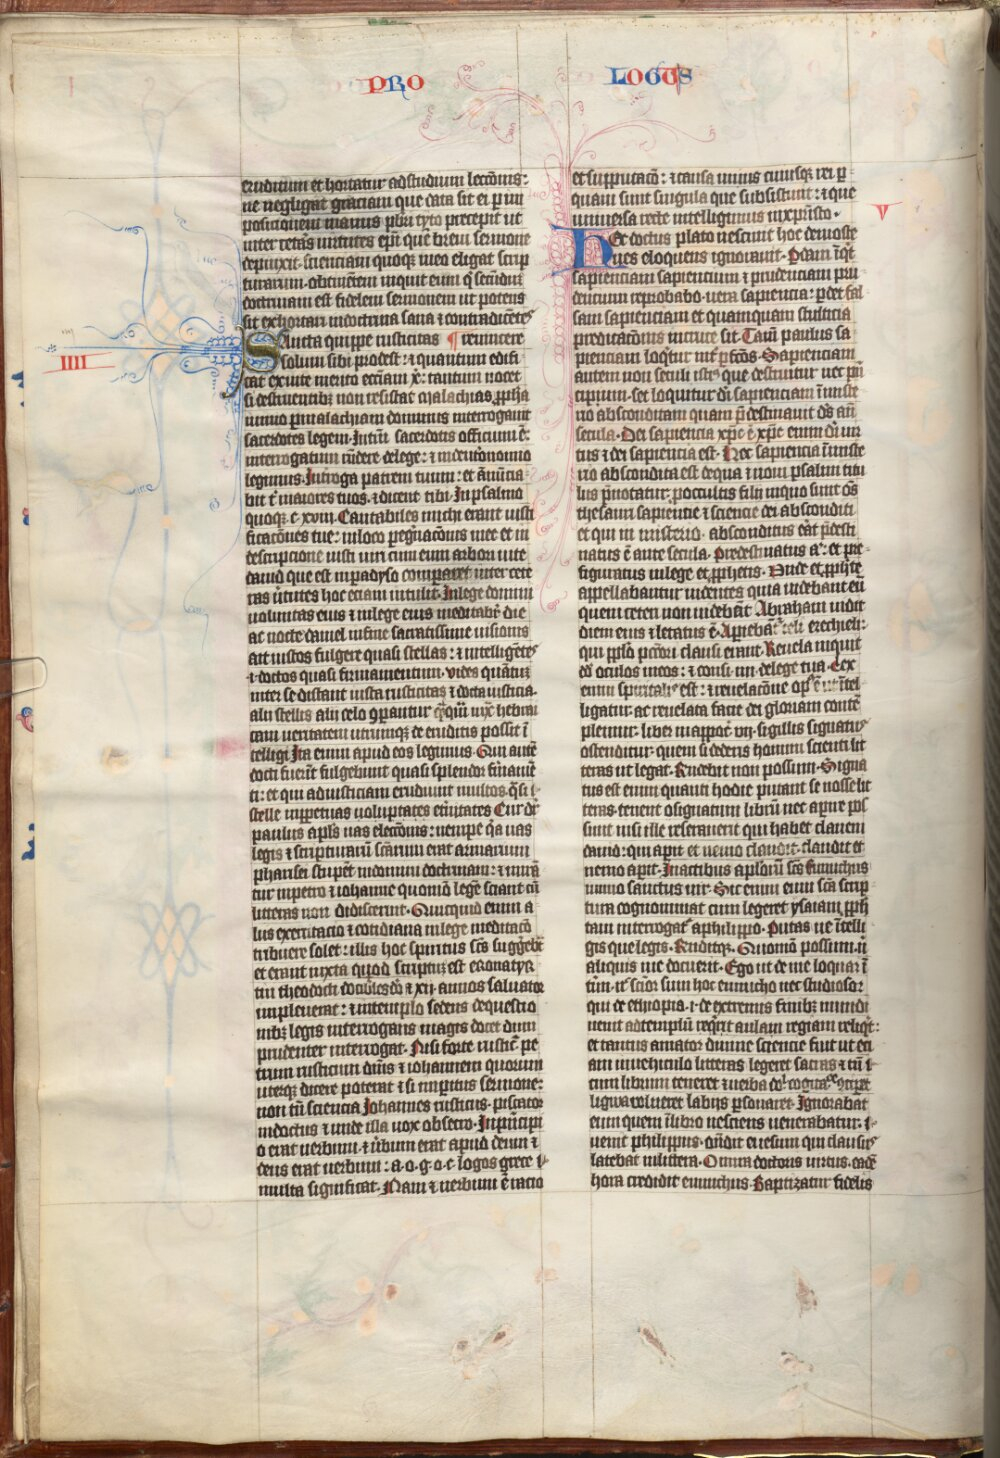 PRO LOGUS
eruditum et hortatur ad studium lectōnis:
ne negligat graciam que data sit ei p im
positionem manus pbri tyto precepit ut
inter ceteras uirtutes epī quē breui sermone
depinxit. scienciam quoqꝫ in eo eligat scrip
turarum. obtinentem inquit eum q̄ secūdum
doctrinam est fidelem sermonem ut potens
sit exhortari in doctrina sana ⁊ contradicētes
IIII
Sancta quippe rusticitas ¶ reuincere
solum sibi prodest: ⁊ quantum edifi
cat ex uite merito eccl̄iam xp̄i: tantum nocet
si destruentibꝫ non resistat Malachias ꝓpha
immo p malachiam dominus interrogauit
sacerdotes legem. Intm̄ sacerdotis officium ē:
interrogatum rūdere de lege: ⁊ in deutronomio
legimus. Introga patrem tuum: et ānūcia
bit t̄ maiores tuos. ⁊ dicent tibi. In psalmo
quoqꝫ c xviii. Cantabiles michi erant iusti
ficacōnes tue: in loco peginacōnis mee et in
descripcione iusti uiri cum eum arbori uite
dauid que est in padyso compararet inter cete
ras ūtutes hoc eciam intulit. In lege domini
uoluntas eius ⁊ in lege eius meditabr̄ die
ac nocte daniel in fine sacratissime uisionis
ait iustos fulgere quasi stellas: ⁊ intelligētes
i doctos quasi firmamentum. vides quātum
inter se distant iusta rusticitas ⁊ docta iusticia.
alij stellis alij celo ꝯparantur
tam ueritatem utrumqꝫ de eruditis possit ī
telligi Ita enim apud eos legimus. Qui autē
docti fuerīt fulgebunt quasi splendor firmamē
ti: et qui ad iusticiam erudiunt multos. q̄si s
stelle in ppetuas uoluptates et̄nitates Cur dr̄
paulus apl̄s uas electōnis: nempe q̄a uas
legis ⁊ scripturarū sc̄arum erat armarium
pharisei stupēt in domini doctrinam: ⁊ mirā
tur in petro ⁊ iohanne quomō legē sciant cū
litteras non didicerint. Quicquid enim a
lijs exercitacio ⁊ cotidiana in lege meditacō
tribuere solet: illis hoc spiritus sc̄s suggebt̄
et erant iuxta quod scriptū est
tm theodocti docibiles do ⁊ xij. annos saluator
impleuerat: ⁊ in templo sedens de questio
nibꝫ legis interrogans magis docet dum
prudenter interrogat. Nisi forte rustic̄ pe
trum rusticum dm̄s ⁊ iohannem quorum
uterqꝫ dicere poterat ⁊ si imperitus sermone:
non tm̄ sciencia Iohannes rusticus. piscator
indoctus ⁊ unde illa uox obsecro. In principi
o erat uerbum. ⁊ ūbum erat apud deum ⁊
deus erat uerbum: a.o.g.o.c logos grece
multa significat. Nam ⁊ uerbum ē racio
et supputacō: ⁊ causa unius cuiusqꝫ rei p
quam sunt singula que subsistunt: ⁊ que
uniuersa recte intelligimus in xpristo.
V
Hec doctus plato nesciuit hoc demoste
nes eloquens ignorauit. Pdam īqt̄
sapienciam sapiencium ⁊ prudenciam pru
dencium reprobabo. uera sapiencia: pdet fal
sam sapienciam et quamquam stulticia
predicacōnis in cruce sit. Tam̄ paulus sa
pienciam loqtur int̄ pfcōs. Sapienciam
autem non seculi istiꝰ que destruitur nec pn̄
cipium. set loquitur di sapienciam ī miste
rio absconditam quam p̄destinauit ds̄ an̄
secula. Dei sapiencia xp̄c ē xp̄c enim dī uir
tus ⁊ dei sapiencia est. Hec sapiencia ī miste
rio abscondita est de qua ⁊ noni psalmi titu
lus p̄notatur. p occultis filij in quo sunt om̄s
thesauri sapientie ⁊ sciencie dei absconditi
et qui in misterio. absconditus eāt p̄desti
natus ē ante secula. Predestinatus a: et pre
figuratus in lege et ꝓphetis. Vnde et ꝓphete
appellabantur uidentes quia uidebant eū
quem ceteri non uidebāt Abraham uidit
diem eius ⁊ letatus ē. Apiebāt celi ezechieli:
qui pplo pccōri clausi erant. Reuela inquit
eos oculos meos: ⁊ consi. mi. de lege tua. Lex
enim spiritalis est: ⁊ reuelacōne opꝰ ē ut ītel
ligatur. ac reuelata facie dei gloriam contē
plemur. liber in appoc. vij. sigillis signatus
ostenditur. quem si dederis homini scienti lit
teras ut legat. Rūdebit non possum. Signa
tus est enim quanti hodie putant se nosse lit
teras. tenent osignatum librū nec apire pos
sunt nisi ille reserauerit qui habet clauem
dauid: qui apit et nemo claudit. claudit et
nemo apit. In actibus apl̄orū sc̄s eunuchus
immo sanctus uir. Sic enim eum sc̄a scrip
tura cognominat cum legeret ysaiam ꝓph
tam interrogatꝰ a philippo. Putas ne ītelli
gis que legis. Rūditqꝫ. Quomō possum. n
aliquis me docuerit. Ego ut de me loquar ī
tim. n̄ sc̄ior sum hoc eunucho nec studiosor
qui de ethiopia. i. de extremis finibꝫ mundi
uenit ad templū reqrit aulam regiam reliqt̄:
et tantus amator diuine sciencie fuit ut eci
am in uehiculo litteras legeret sacras ⁊ tm̄ i
cum librum teneret ⁊ uerba do cogitac̄ ꝯciperet
ligwa uolueret labijs psonaret. Ignorabat
eum quem ī libro nesciens uenerabatur. i
uenit philippus. ondit ei iesum qui clausus
latebat in littera. O mira doctoris uirtus. eadē
hora credidit eunuchus. Baptizatur fidelis